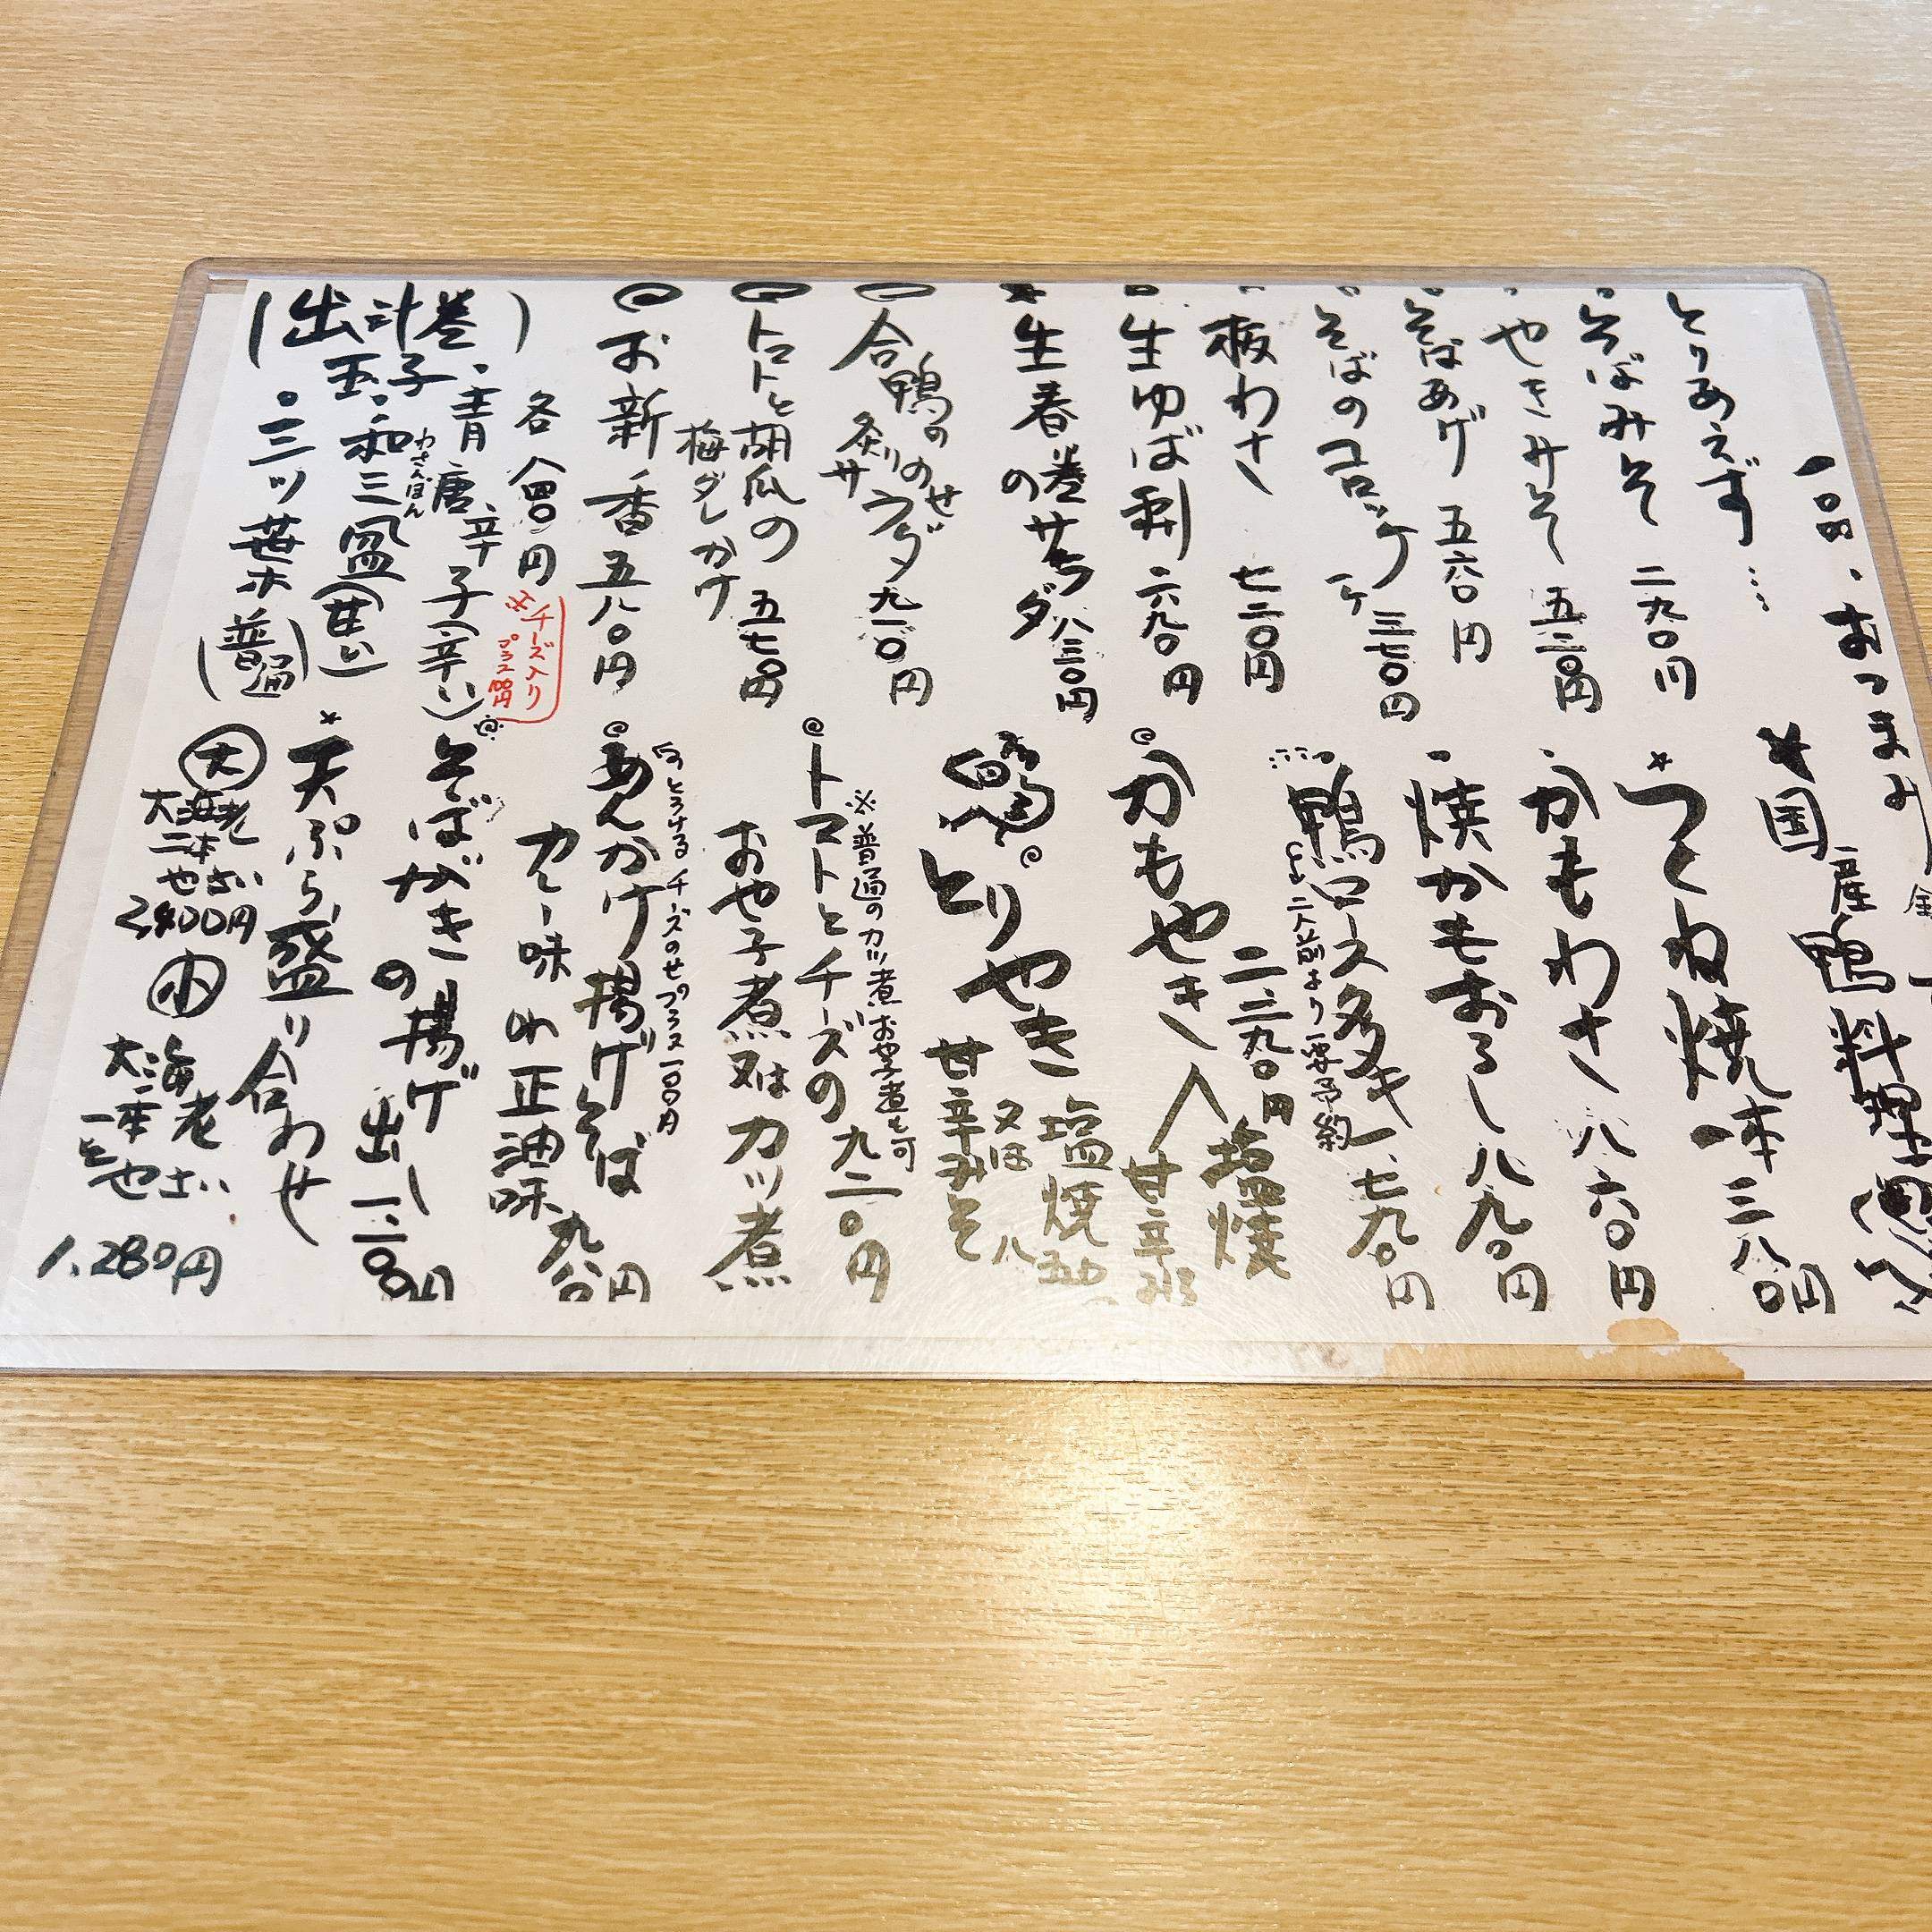 一品・おつまみ
とりあえず…
そばみそ 二九〇円
やきみそ 五二〇円
そばあげ 五六〇円
そばのコロッケ 一ヶ 三七〇円
板わさ 七二〇円
生ゆば刺 六九〇円
生春巻のサラダ 八三〇円
合鴨の炙りのせサラダ 九一〇円
トマトと胡瓜の梅ダレかけ 五七〇円
お新香 五八〇円
各 円
※チーズ入りプラス 円
(出汁巻玉子)
・青唐辛子(辛い)
・和三盆(甘い)
わさんぼん
・三ツ葉 (普通)
★国産鴨料理
*つくね焼 一本 三八〇円
・かもわさ 八六〇円
・焼かもおろし 八九〇円
鴨ロースタタキ 一、七九〇円
二人前より 要予約
かもやき 一人 二、二九〇円
塩焼
甘辛
とりやき
塩焼
又は
甘辛みそ
トマトとチーズの 九二〇円
おや子煮又はカツ煮
※普通のカツ煮おや子煮も可
あんかけ揚げそば 円
のとろけるチーズのせプラス一〇〇円
カレー味 or 正油味
そばがきの揚げ出し 一、一〇〇円
*天ぷら盛り合わせ
大 大海老二本 2,400円
小 大海老一本 1,280円